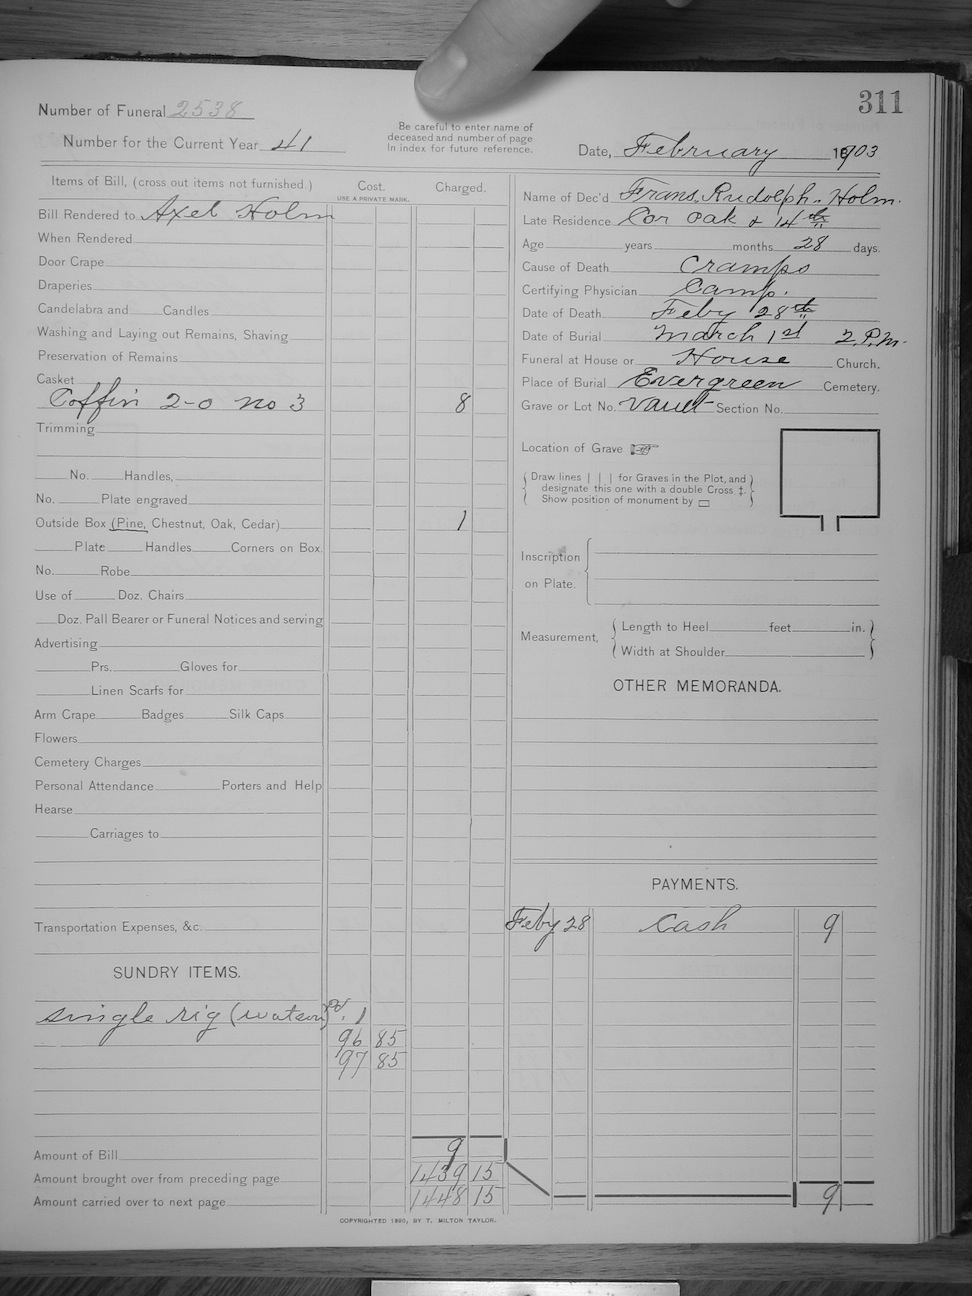 311
Number of Funeral 2538
Number for the Current Year 41
Be careful to enter name of
deceased and number of page
In index for future reference.
Date, February 1903
Items of Bill, (cross out items not furnished.)
Cost.
USE A PRIVATE MARK.
Charged.
Bill Rendered to Axel Holm
When Rendered
Door Crape
Draperies
Candelabra and Candles
Washing and Laying out Remains, Shaving
Preservation of Remains
Casket
Coffin 2-0 no 3 8
Trimming
No. Handles,
No. Plate engraved
Outside Box (Pine, Chestnut, Oak, Cedar) 1
Plate Handles Corners on Box.
No. Robe
Use of Doz. Chairs
Doz. Pall Bearer or Funeral Notices and serving
Advertising
Prs. Gloves for
Linen Scarfs for
Arm Crape Badges Silk Caps
Flowers
Cemetery Charges
Personal Attendance Porters and Help
Hearse
Carriages to
Transportation Expenses, &c.
SUNDRY ITEMS.
single rig (watson) pd. 1
96 85
97 85
Amount of Bill 9
Amount brought over from preceding page 1439 15
Amount carried over to next page 1448 15
Name of Dec'd Frans Rudolph Holm.
Late Residence Cor Oak & 14th
Age years months 28 days.
Cause of Death Cramps
Certifying Physician Camp.
Date of Death Feby 28th
Date of Burial March 1st 2 P.M.
Funeral at House or House Church.
Place of Burial Evergreen Cemetery.
Grave or Lot No. Vault Section No.
Location of Grave
Draw lines | | | for Graves in the Plot, and
designate this one with a double Cross ‡.
Show position of monument by ▭
Inscription
on Plate.
Measurement,
Length to Heel feet in.
Width at Shoulder
OTHER MEMORANDA.
PAYMENTS.
Feby 28 Cash 9
9
COPYRIGHTED 1890, BY T. MILTON TAYLOR.